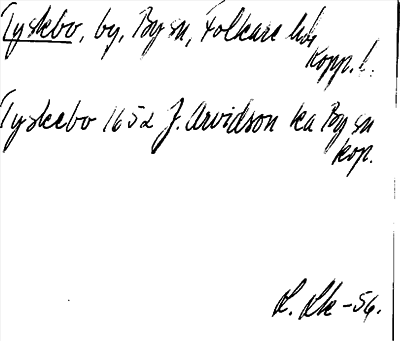 Tyskbo, by, By sn, Folkare hd,
Kopp. l.
Tyskebo 1652 J. Arvidson ka By sn
kop.
L. Lk -56.